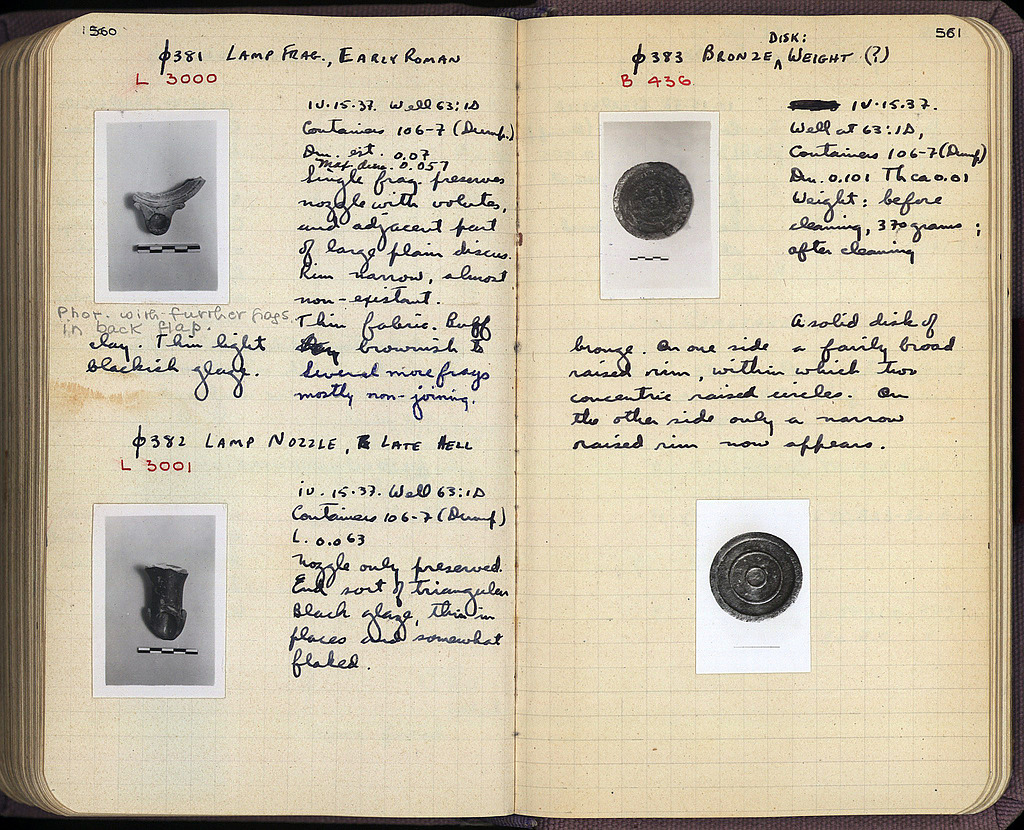 1560
φ381 LAMP FRAG., EARLY ROMAN
L 3000
IV.15.37. Well 63:1D
Containers 106-7 (Dump.)
Dm. est. 0.07
Max. dim. 0.057
Single frag. preserves
nozzle with volutes,
and adjacent part
of large plain discus.
Rim narrow, almost
non-existant.
Thin fabric. Buff
brownish to
Phot. with further frags.
in back flap.
clay. Thin light
blackish glaze.
Several more frags
mostly non-joining.
φ382 LAMP NOZZLE, LATE HELL
L 3001
IV.15.37. Well 63:1D
Containers 106-7 (Dump)
L. 0.063
Nozzle only preserved.
End sort of triangular
Black glaze, thin in
places and somewhat
flaked.
561
DISK:
φ383 BRONZE ^ WEIGHT (?)
B 436
IV.15.37.
Well at 63:1D,
Containers 106-7 (Dump)
Dm. 0.101 Th ca 0.01
Weight: before
cleaning, 370 grams;
after cleaning
A solid disk of
bronze. On one side a fairly broad
raised rim, within which two
concentric raised circles. On
the other side only a narrow
raised rim now appears.